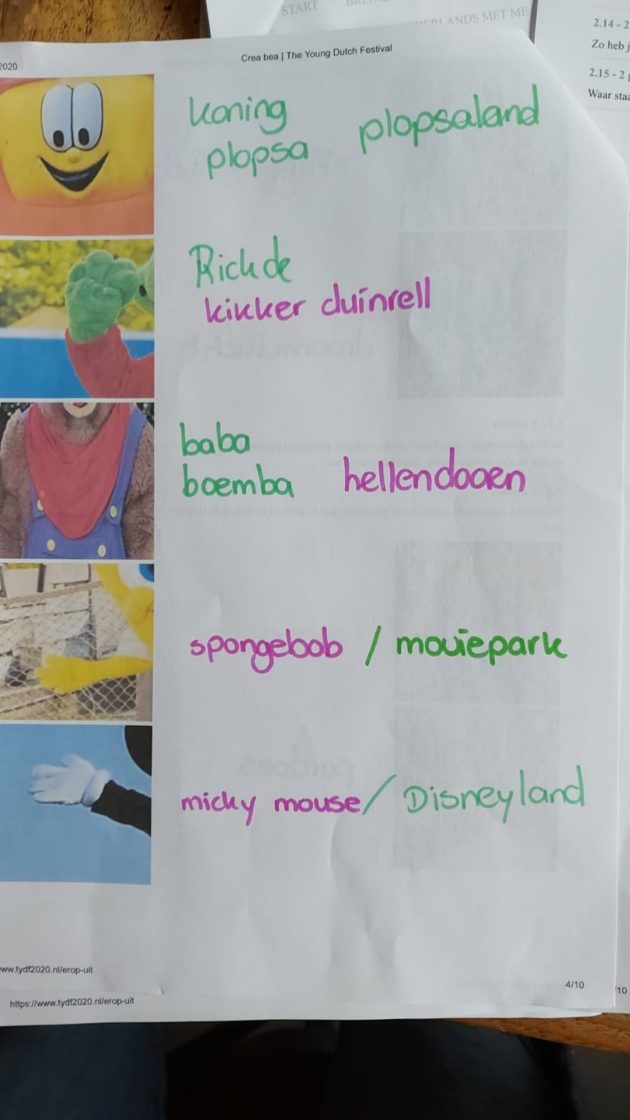 START
NEDERLANDS MET ME
2.14 - 2
Zo heb j
2.15 - 2
Waar staa
2020
Crea bea | The Young Dutch Festival
koning
plopsa plopsaland
Rick de
kikker duinrell
baba
boemba hellendooen
spongebob / mouiepark
micky mouse / Disneyland
ww.tydf2020.nl/erop-uit
4/10
/10
https://www.tydf2020.nl/erop-uit